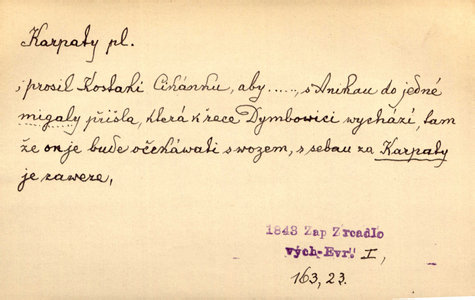 Karpaty pl.
, prosil Kostaki Cikánku, aby ....., s Anikau do jedné
migaly přišla, která k řece Dymbowici wychází, tam
že on je bude očekáwati s wozem, s sebau za Karpaty
je zaweze,
1843 Zap Zrcadlo
vých-Evr." I,
163, 23.